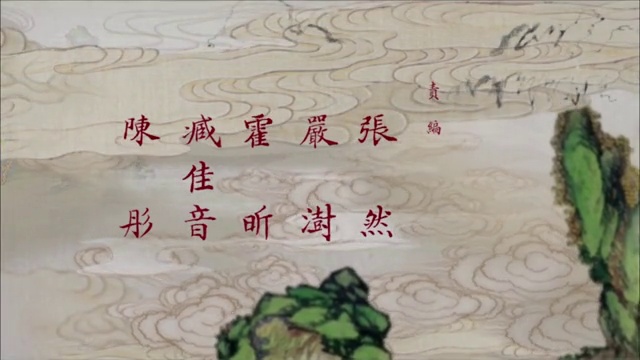 責編
張然
嚴澍
霍昕
臧佳音
陳彤